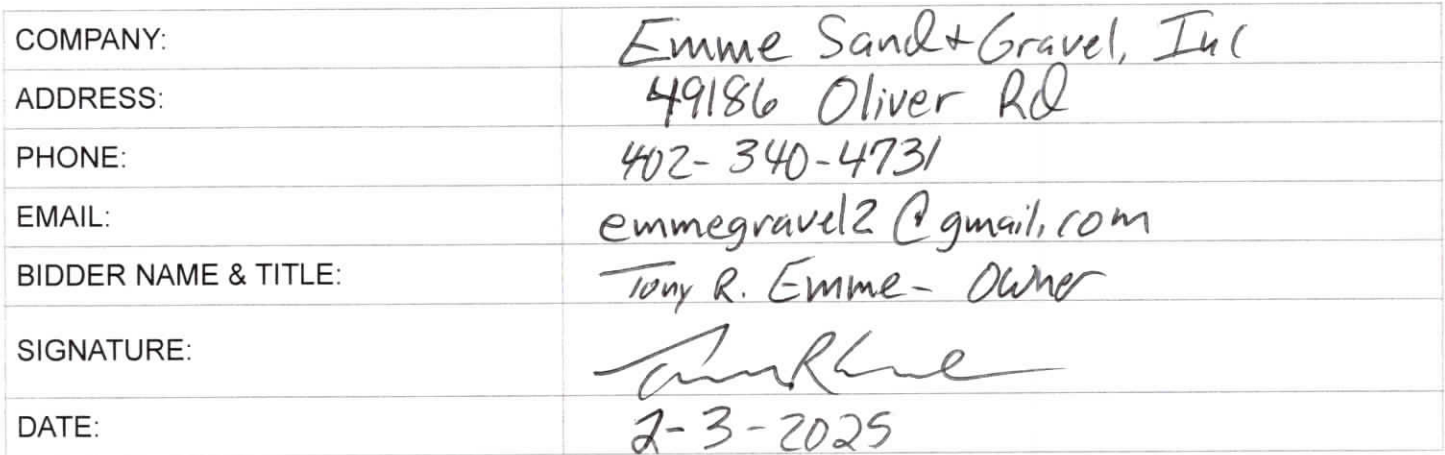 COMPANY: Emme Sand + Gravel, Inc
ADDRESS: 49186 Oliver Rd
PHONE: 402-340-4731
EMAIL: emmegravel2@gmail.com
BIDDER NAME & TITLE: Tony R. Emme - Owner
SIGNATURE:
DATE: 2-3-2025